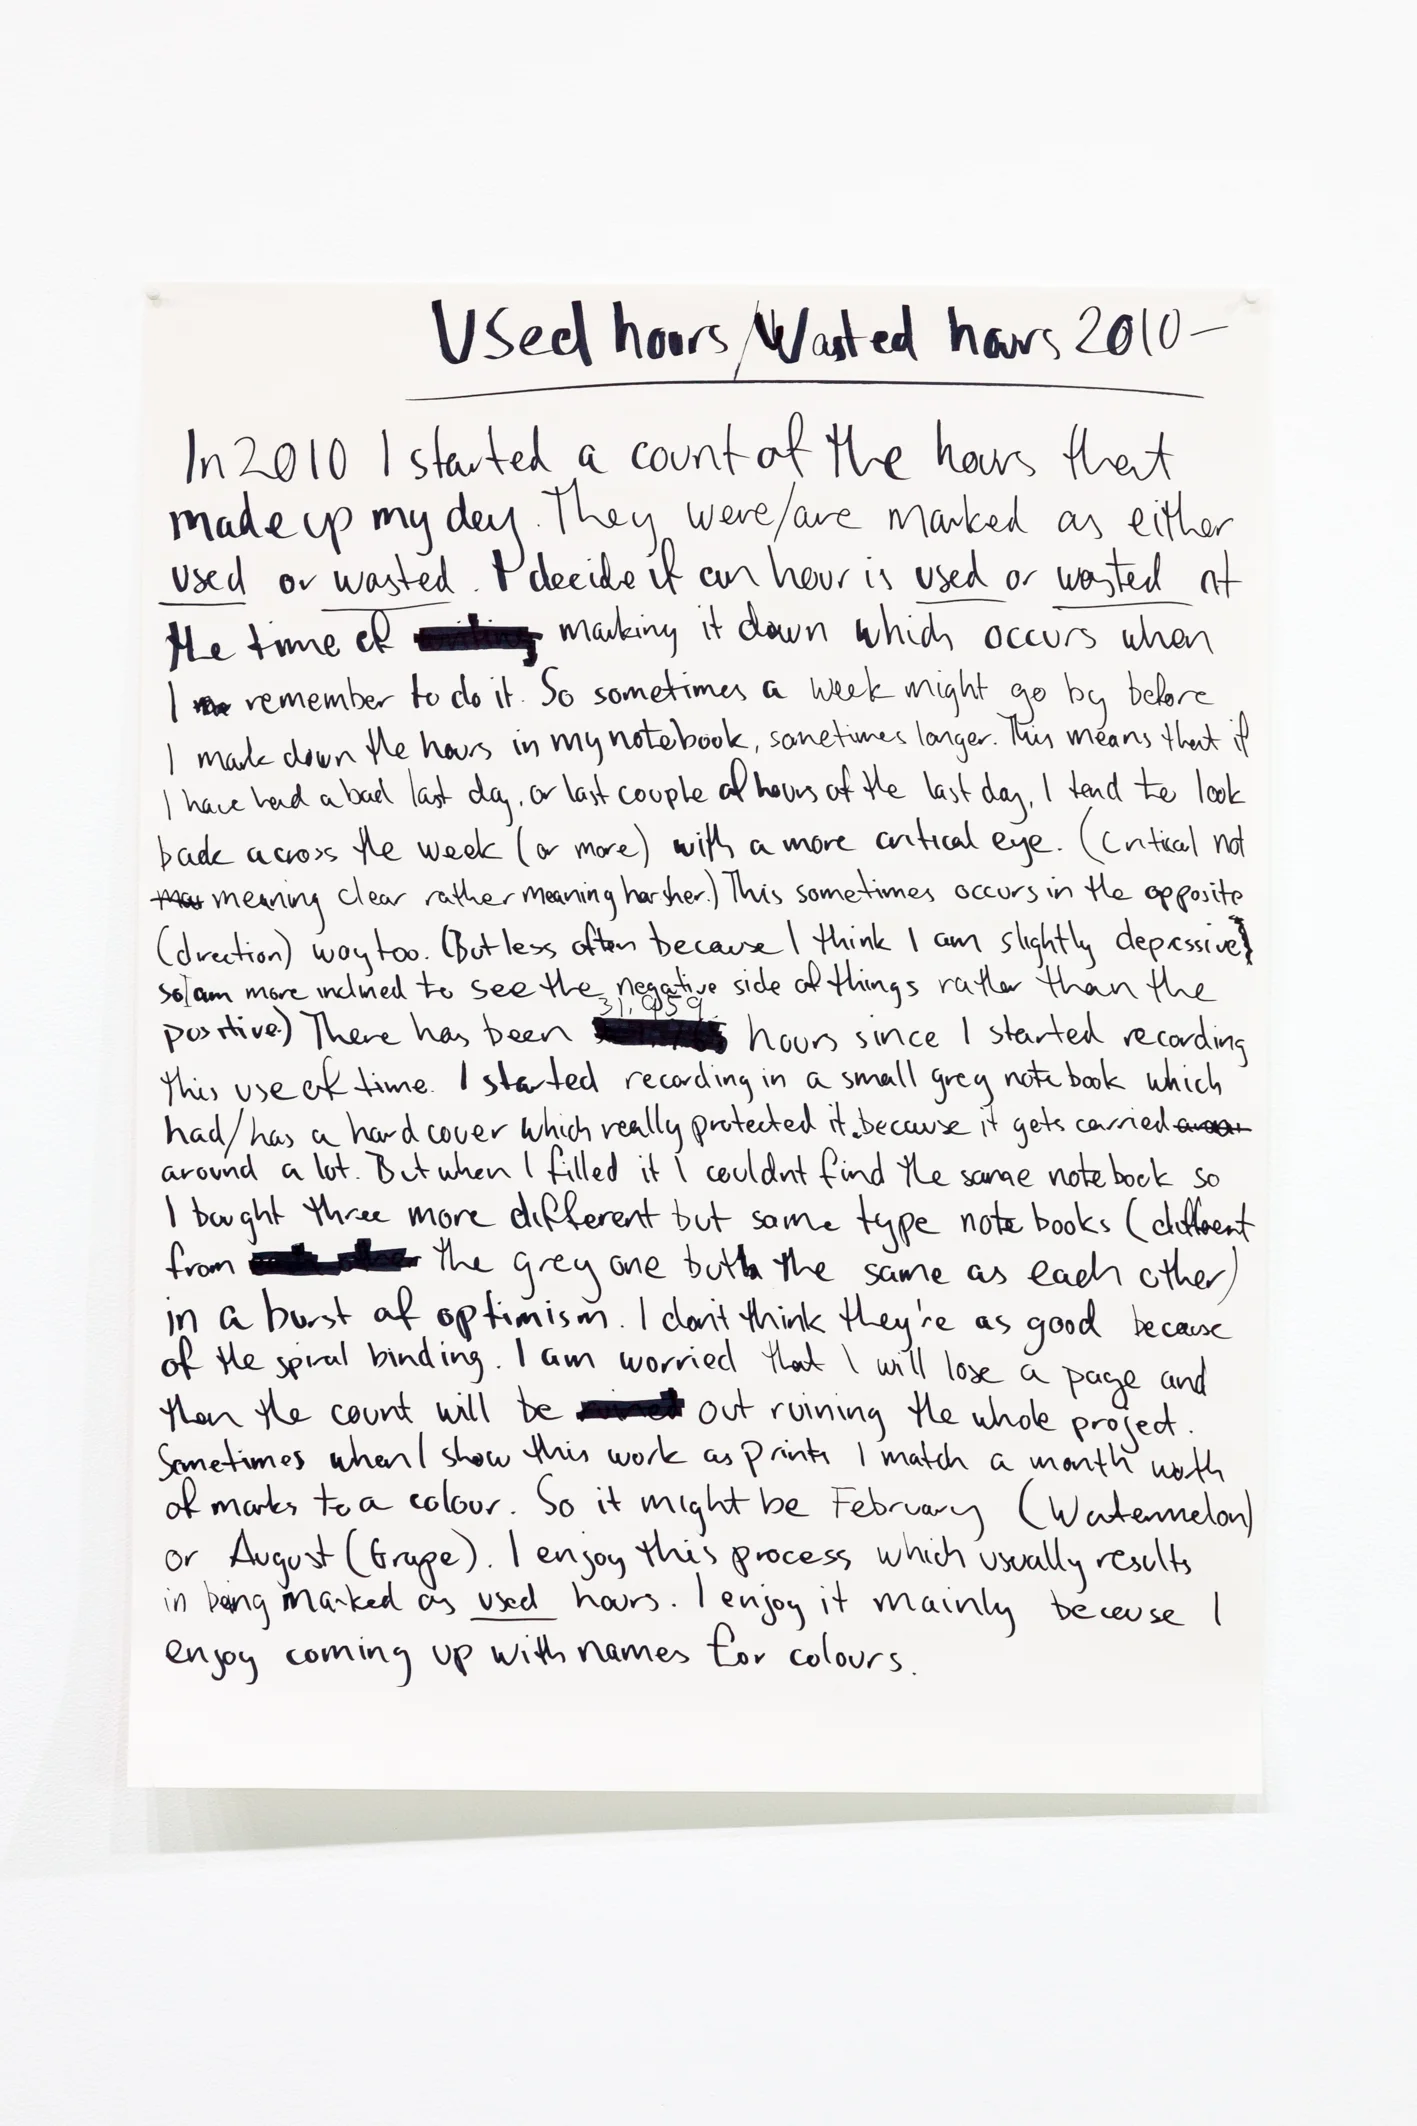 Used hours/Wasted hours 2010-
In 2010 I started a count of the hours that
made up my day. They were/are marked as either
used or wasted. I decide if an hour is used or wasted at
the time of marking it down which occurs when
I remember to do it. So sometimes a week might go by before
I mark down the hours in my notebook, sometimes longer. This means that if
I have had a bad last day, or last couple of hours of the last day, I tend to look
back across the week (or more) with a more critical eye. (Critical not
meaning clear rather meaning harsher.) This sometimes occurs in the opposite
(direction) way too. (But less often because I think I am slightly depressive,
so I am more inclined to see the negative side of things rather than the
positive.) There has been 31,959 hours since I started recording
this use of time. I started recording in a small grey notebook which
had/has a hard cover which really protected it because it gets carried
around a lot. But when I filled it I couldnt find the same notebook so
I bought three more different but same type notebooks (different
from the grey one but the same as each other)
in a burst of optimism. I don't think they're as good because
of the spiral binding. I am worried that I will lose a page and
then the count will be out ruining the whole project.
Sometimes when I show this work as prints I match a month worth
of marks to a colour. So it might be February (Watermelon)
or August (Grape). I enjoy this process which usually results
in being marked as used hours. I enjoy it mainly because I
enjoy coming up with names for colours.